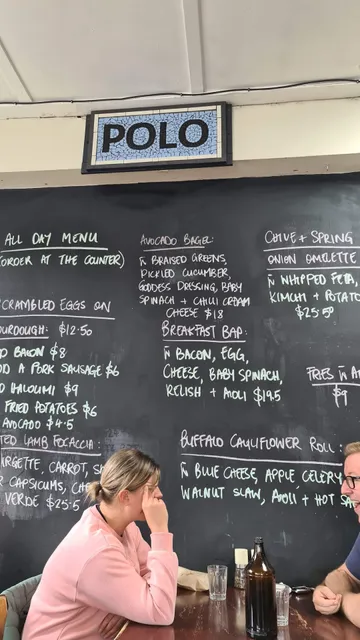 POLO
ALL DAY MENU
(ORDER AT THE COUNTER)
SCRAMBLED EGGS ON
SOURDOUGH: $12.50
BACON $8
A PORK SAUSAGE $6
HALOUMI $9
FRIED POTATOES $6
AVOCADO $4.5
LAMB FOCACCIA:
CARROT,
CAPSICUMS,
VERDE $25.5
AVOCADO BAGEL:
BRAISED GREENS,
PICKLED CUCUMBER,
GODDESS DRESSING, BABY
SPINACH + CHILLI CREAM
CHEESE $18
BREAKFAST BAP:
BACON, EGG,
CHEESE, BABY SPINACH,
RELISH + AIOLI $19.5
CHIVE + SPRING
ONION OMELETTE
WHIPPED FETA,
KIMCHI + POTATO
$25.50
FRIES
$9
BUFFALO CAULIFLOWER ROLL:
BLUE CHEESE, APPLE, CELERY
WALNUT SLAW, AIOLI + HOT